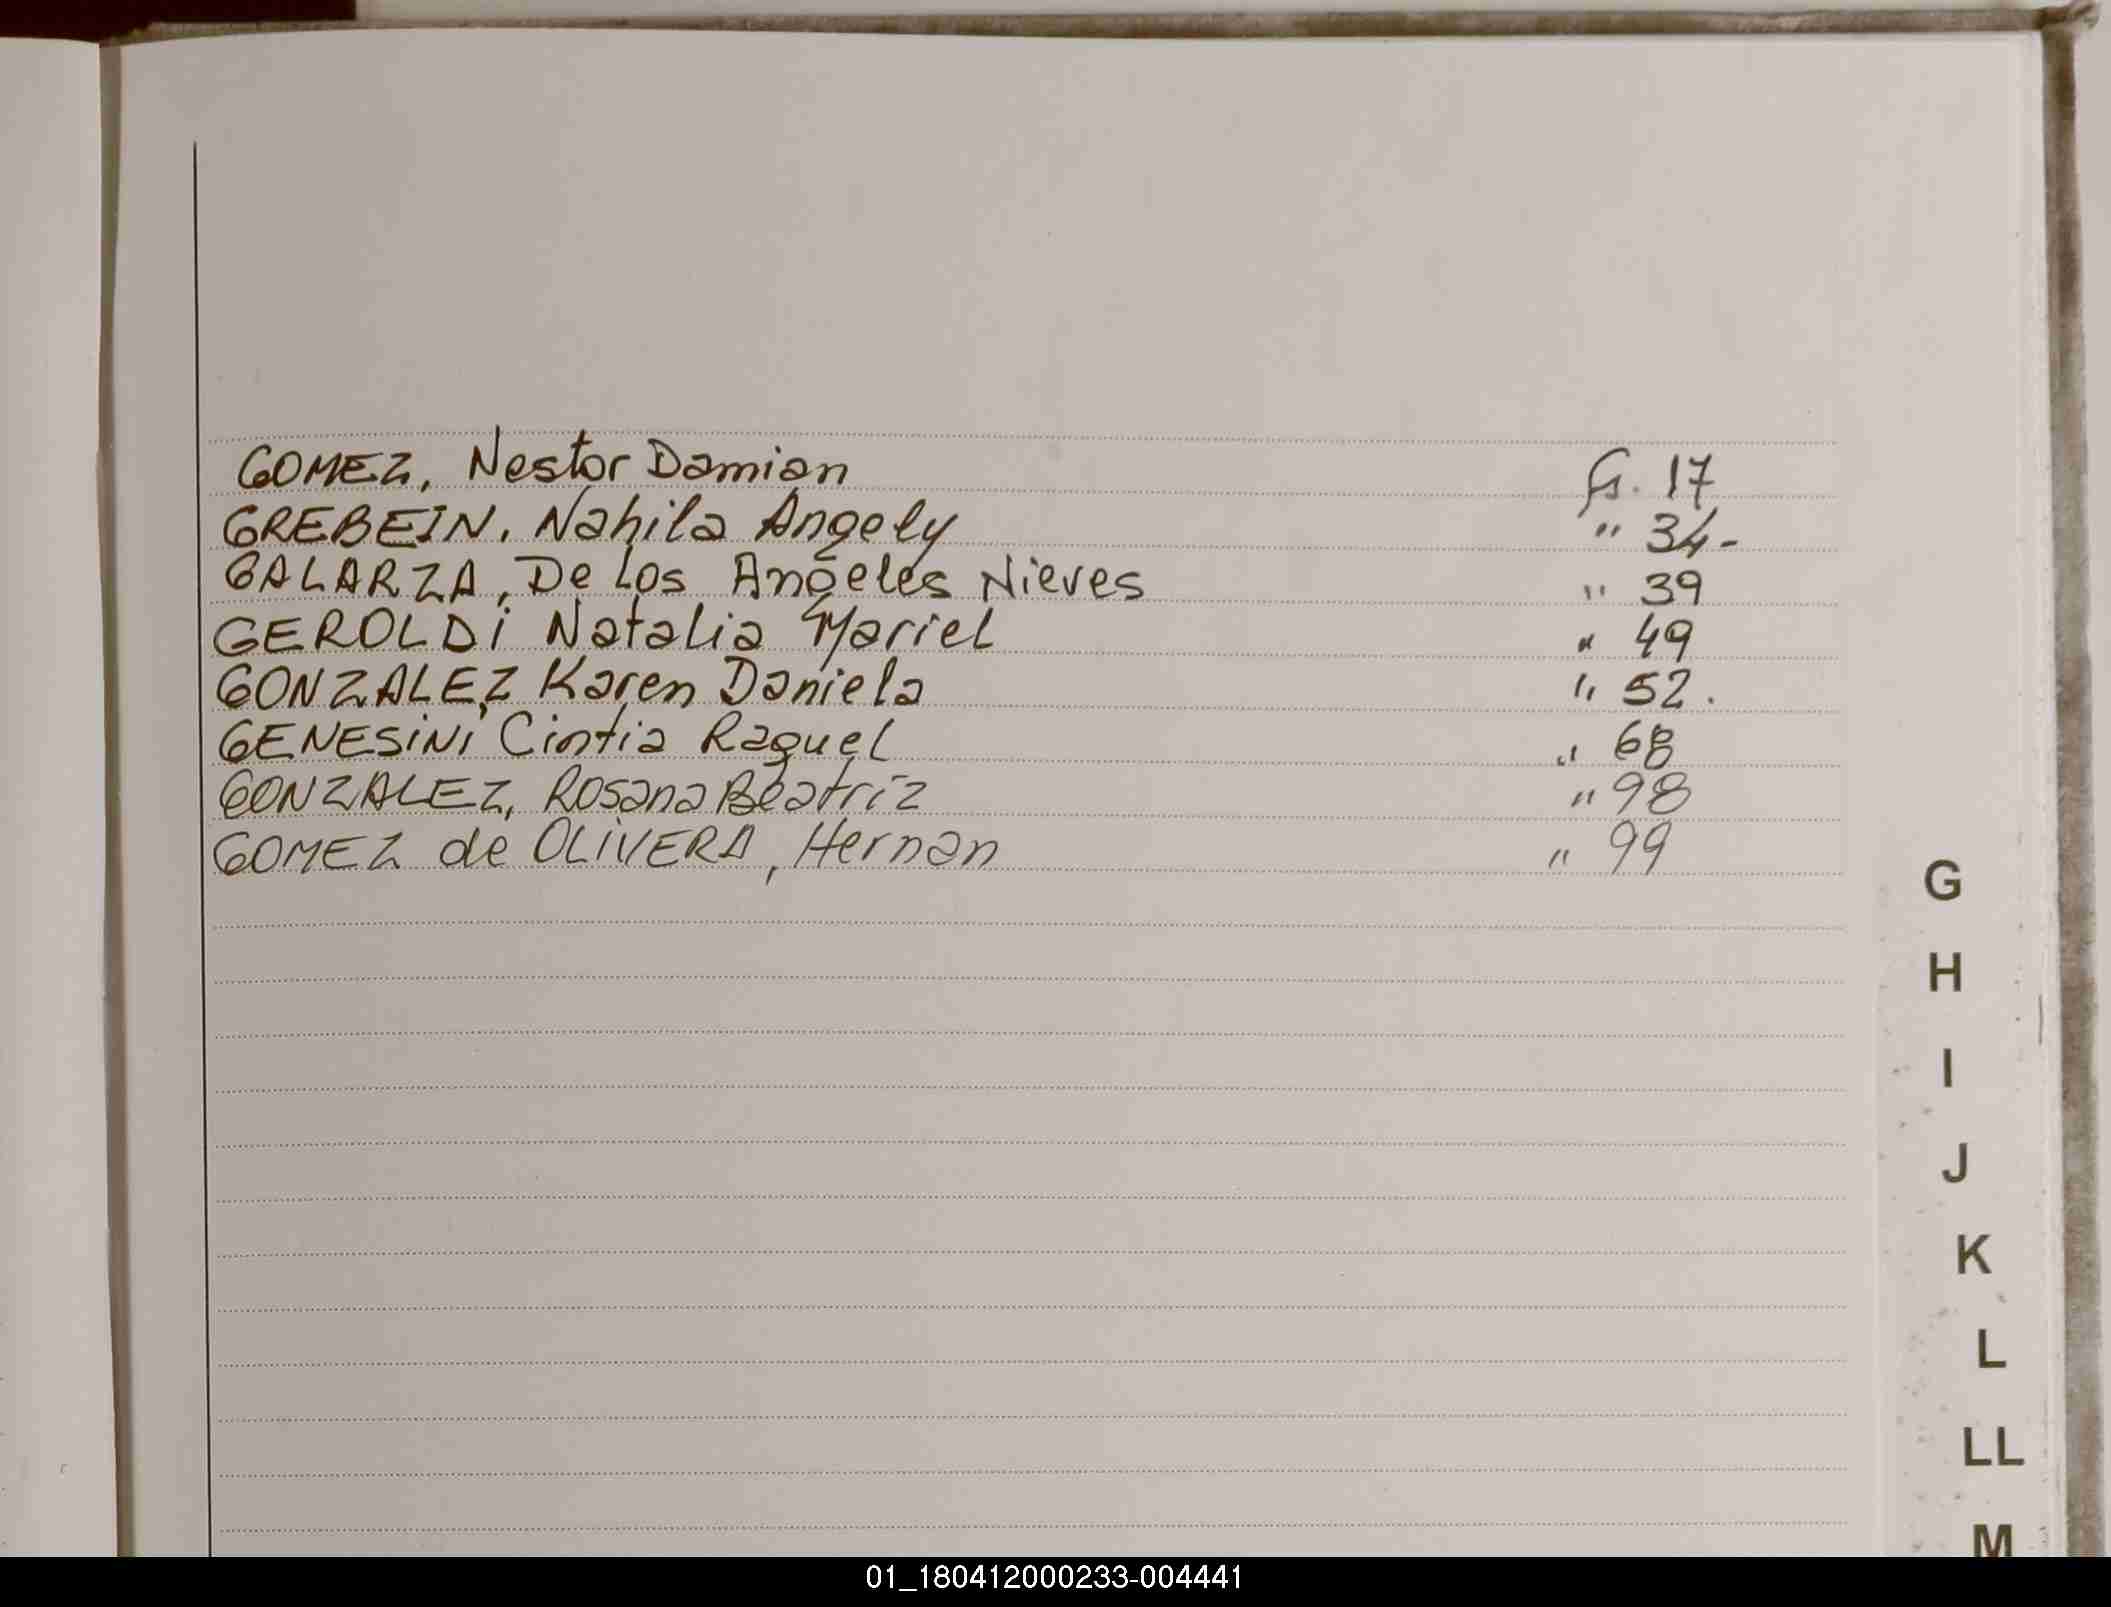 GOMEZ, Nestor Damian G. 17
GREBEIN, Nahila Angely " 34-
GALARZA, De Los Angeles Nieves " 39
GEROLDI Natalia Mariel " 49
GONZALEZ, Karen Daniela " 52.
GENESINI Cintia Raquel " 68
GONZALEZ, Rosana Beatriz " 98
GOMEZ de OLIVERA, Hernan " 99
G
H
I
J
K
L
LL
M
01_180412000233-004441